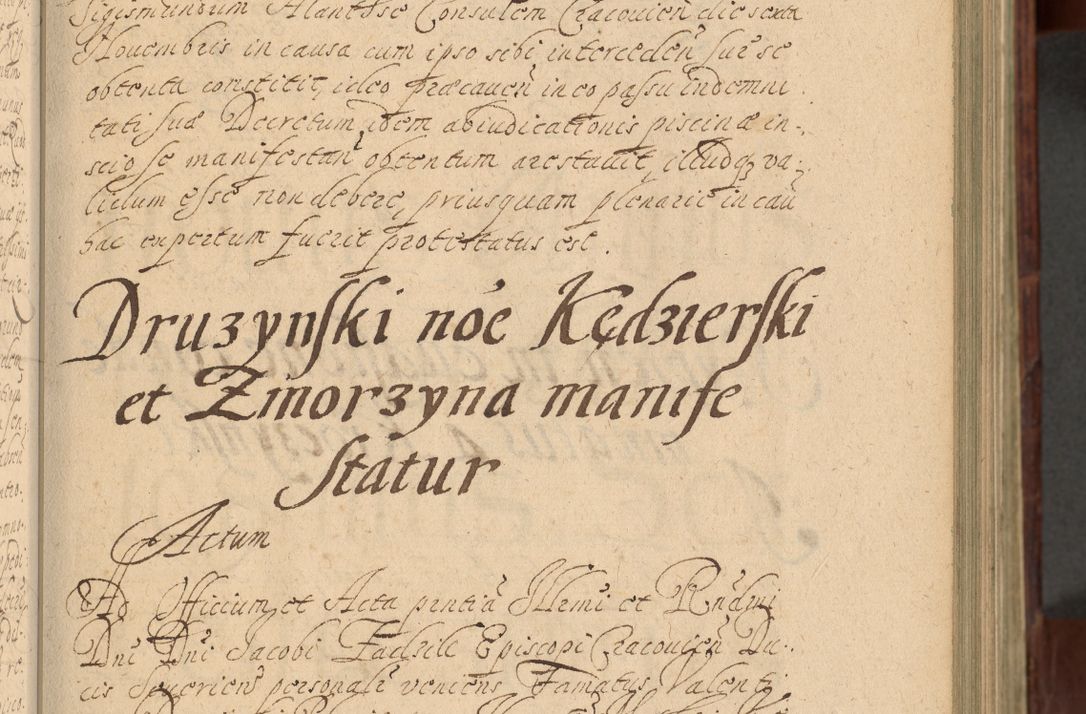 Sigismundum Alantsse Consulem Cracouień die sexta
Nouembris in causa cum ipso sibi intercedeń sur se
obtenta constitit, ideo præcaueń in eo passu indemni
tati suæ Decretum idem abiudicationis piscinæ in-
scio se manifestań obtentum arestauit, illudq3 va-
lidum esse non debere, priusquam plenarie in cau
hac expertum fuerit protestatus est.
Druzynski nóe Kędzierski
et Zmorzyna manife
statur
Actum
Ad Officium et Acta pntia Illrmi et Rndmi
Dni Dni Jacobi Zadzik Episcopi Cracouień Du-
cis Seuerień personalr veniens Famatus Valenti